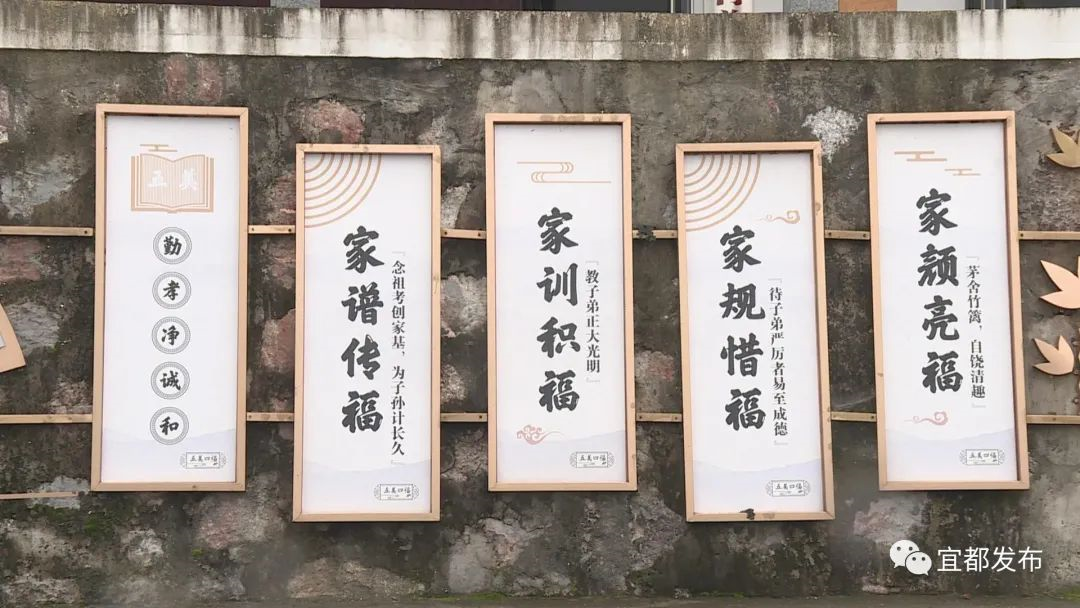 五美
勤
孝
净
诚
和
五美四福
家谱传福
『念祖考创家基，为子孙计长久』
五美四福
家训积福
『教子弟正大光明』
五美四福
家规惜福
『待子弟严厉者易至成德』
五美四福
家颜亮福
『茅舍竹篱，自饶清趣』
五美四福
宜都发布